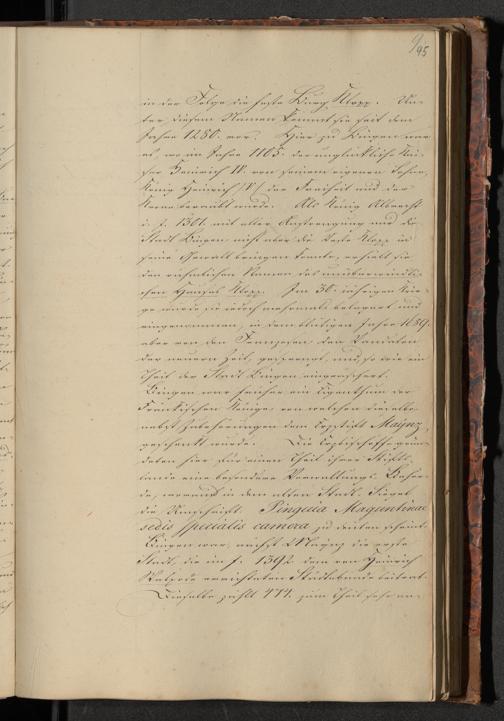 95
in der Folge die feste Burg Klopp. Un-
ter diesem Namen kommt sie seit dem
Jahre 1280. vor. Hier zu Bingen war
es, wo im Jahre 1105. der unglückliche Kai-
ser Heinrich IV. von seinem eigenen Sohne,
König Heinrich V. der Freiheit und der
Krone beraubt wurde. Als König Albrecht
i. J. 1301. mit aller Anstrengung nur die
Stadt Bingen nicht aber die Veste Klopp in
seine Gewalt bringen konnte, erhielt sie
den rühmlichen Namen des unüberwindli-
chen Hauses Klopp. Im 30. jährigen Krie-
ge wurde sie jedoch mehrmals belagert und
eingenommen, in dem blutigen Jahre 1689.
aber von den Franzosen den Vandalen
der neuern Zeit, gesprengt, und so wie ein
Theil der Stadt Bingen eingeäschert.
Bingen war früher ein Eigenthum der
Fränkischen Könige, von welchen dieselbe
nebst Zubehörungen dem Erzstift Mainz
geschenkt wurde. Die Erzbischöffe
hier für einen Theil ihrer Stifts-
lande eine besondere Verwaltungs Behör-
de, worauf in dem alten Stadt Siegel
die Umschrift. Pinguia Magontinae
sedis specialis camera zu deuten scheint.
Bingen war, nächst Mainz die erste
Stadt, die im J. dem von Heinrich
Walpode errichteten Städtebunde beitrat.
Dieselbe zählt 474. zum Theil sehr an-